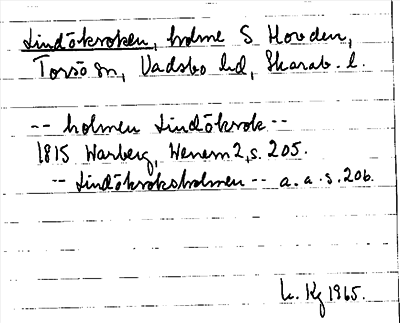 Lindökroken, holme S Hovden,
Torsö sn, Vadsbo hd, Skarab. l.
-- holmen Lindökrok --
1815 Warberg, Wenern 2, s. 205.
-- Lindökroksholmen -- a. a. s. 206.
Kg 1965.